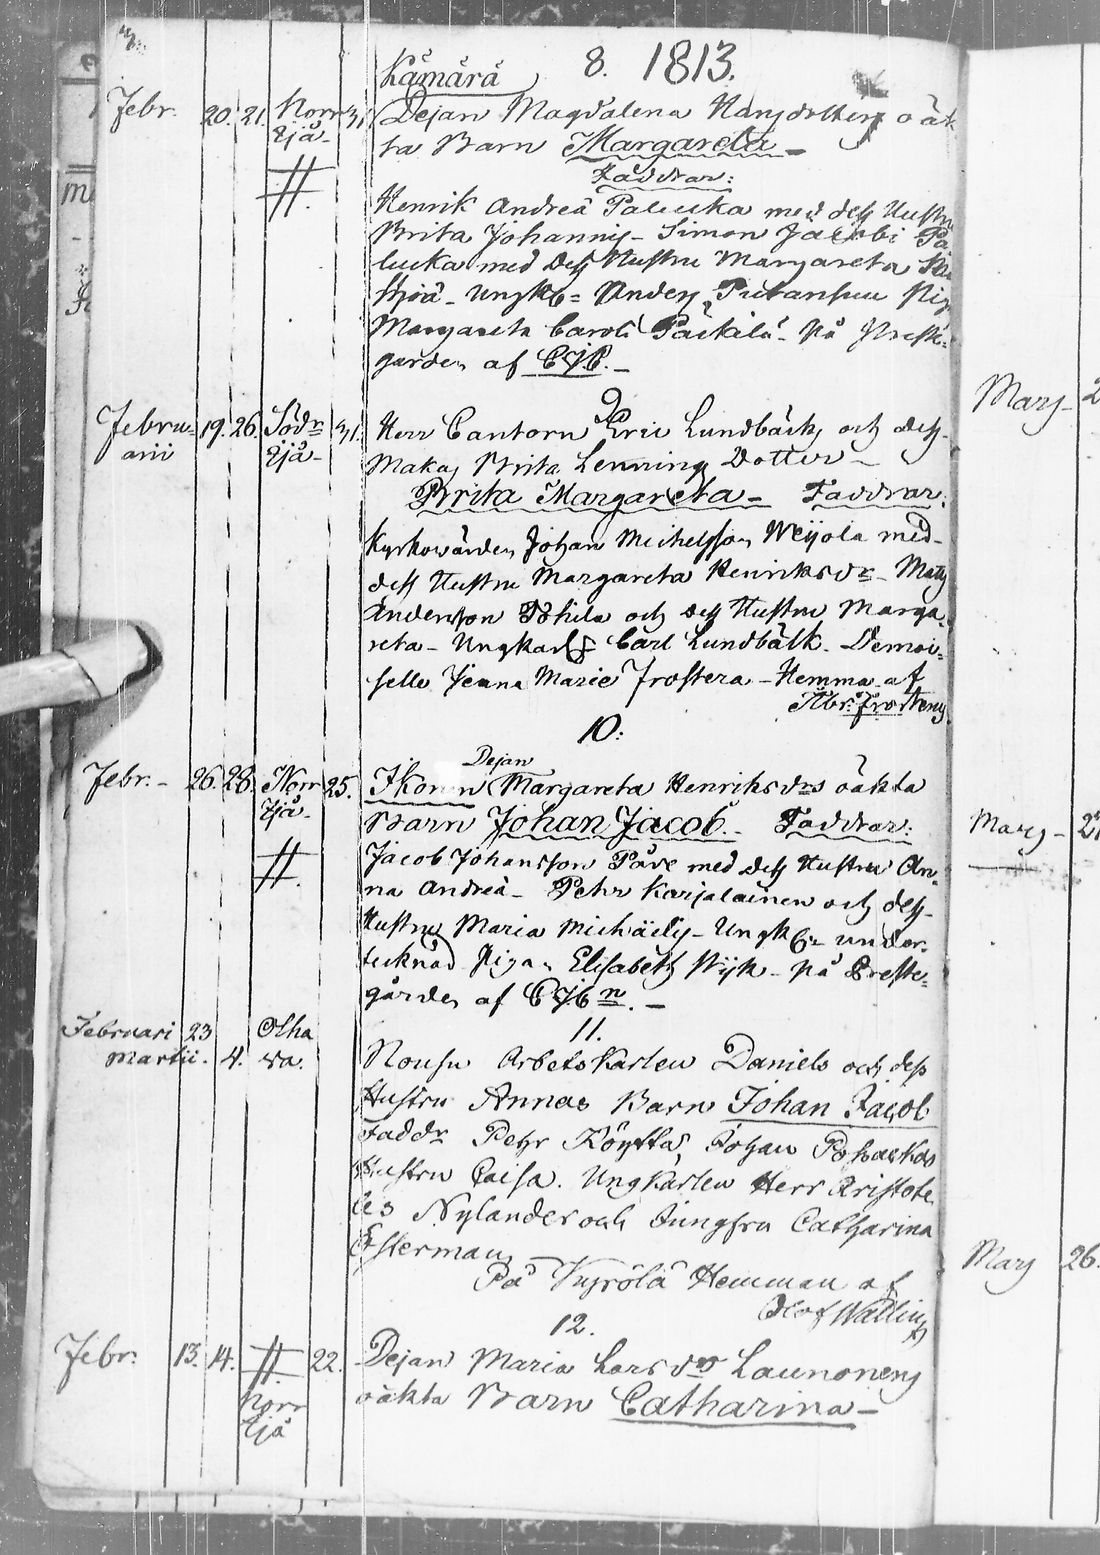 Kämärä 8. 1813.
Febr. 20. 21. Norr 31 Dejan Magdalena Hansdotters oäk-
Ijå- ta Barn Margareta -
Faddrar:
Henrik Andreä Palucka med dess Hustru
Brita Johannis - Simon Jacobi Pa
lucka med dess Hustru Margareta
- Ungk: Anders Pig
Margareta Caroli Päckilä - På Prestе-
gården af
9
Febru= 19. 26. Södr 31. Herr Cantorn Eric Lundbäck och dess
arii Ijå- Maka Brita Lenning Dotter -
Brita Margareta - Faddrar.
Kyrkowärden Johan Michelsson Weijola med
dess Hustru Margareta Henriksdr - Matts
Andersson Tohila och dess Hustru Marga-
reta - Ungkarl Carl Lundbäck - Demoi=
selle Jeana Marie Frostera - Hemma af
Abr: Frosterus
10:
Dejan
Febr. - 26. 28. Norr 25. Ikonen Margareta Henriksdrs oäkta
Ijå- Barn Johan Jacob. - Faddrar:
Jacob Johansson Påve med dess Hustru An=
na Andreä - Pehr Karjalainen och dess
Hustru Maria Michaëlis - Ungk: under=
tecknad Pigan Elisabeth Wijk - På Preste=
gården af
11.
Februari 23 Olha
Martii. 4. va. Nousu Arbetskarlen Daniels och dess
Hustru Annas Barn Johan Jacob
Faddr Pehr Köyttä, Johan
Hustru Caisa. Ungkarlen Herr Aristote
les Nylander och Jungfru Catharina
Esterman
På Kyrölä Hemman af
Olof Wallin
12.
Febr: 13. 14. 22. Dejan Maria Larsdr Launonens
Norr oäkta Barn Catharina -
Ijå
Mars - 2
Mars - 2
Mars 26.